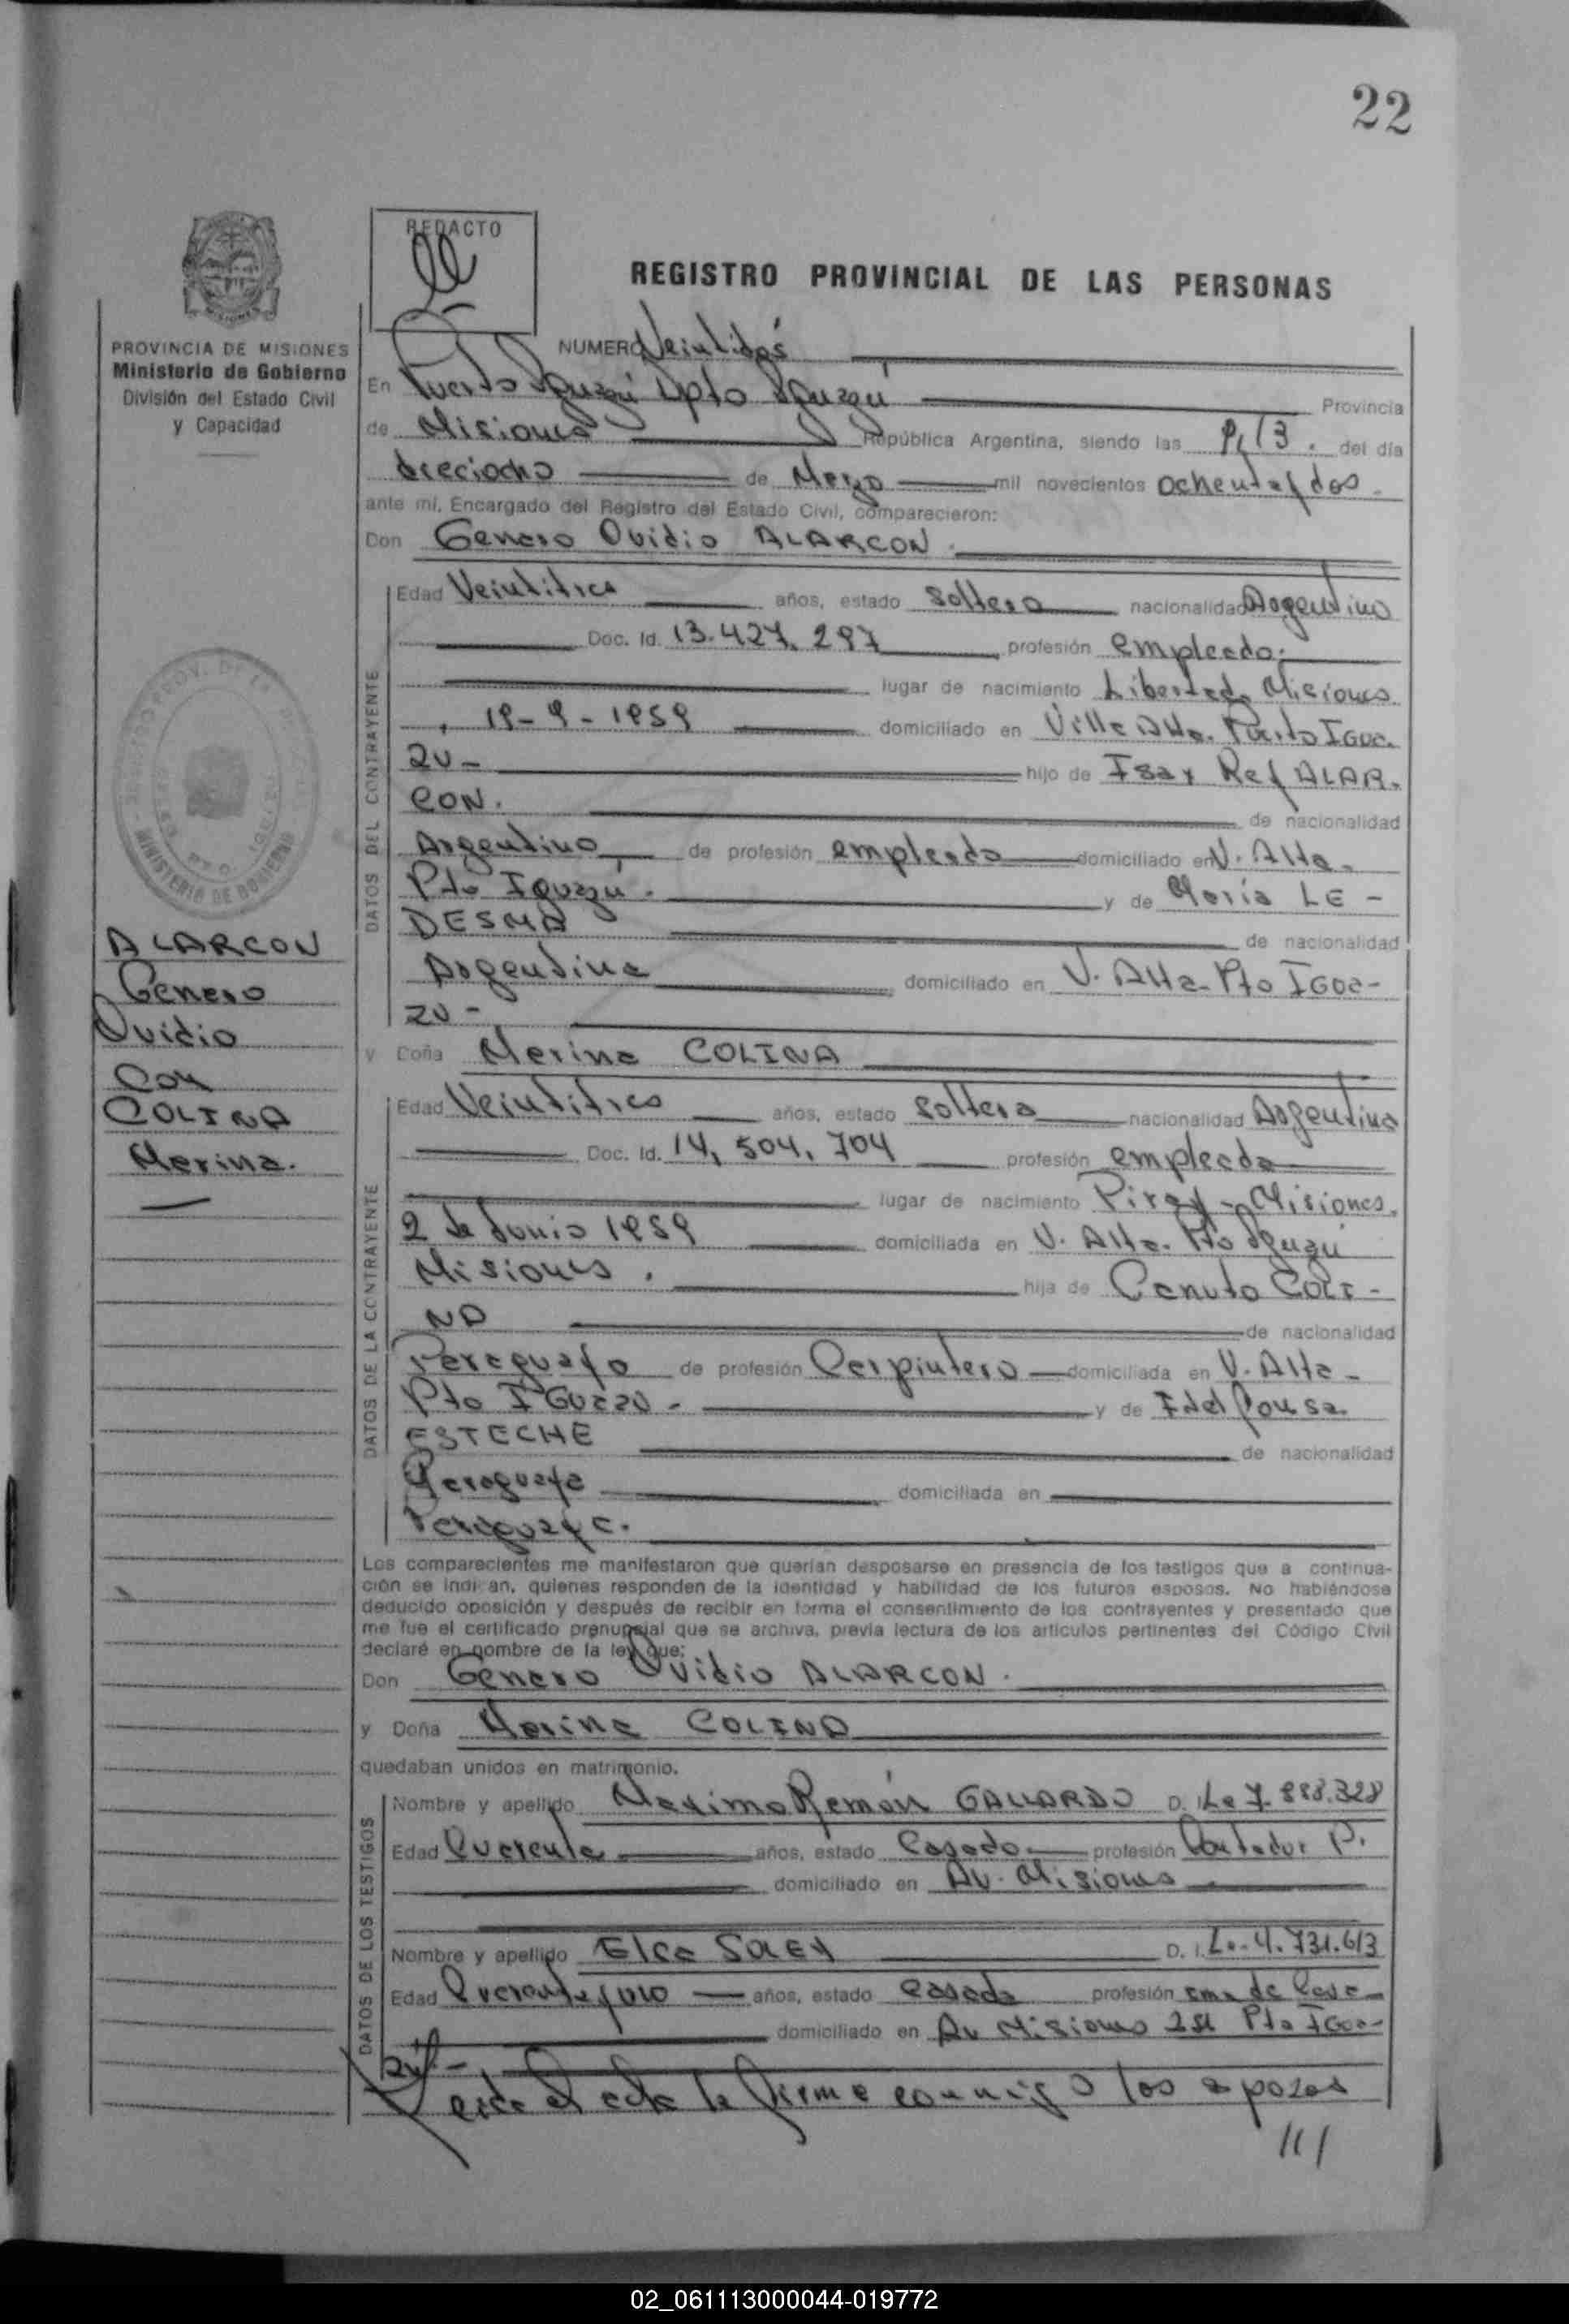 22
REDACTO
REGISTRO PROVINCIAL DE LAS PERSONAS
PROVINCIA DE MISIONES
Ministerio de Gobierno
División del Estado Civil
y Capacidad
NUMERO Veintidós
En Puerto Iguazú Dpto Iguazú Provincia
de Misiones República Argentina, siendo las 9,13. del día
dieciocho de Marzo mil novecientos ochenta y dos.
ante mí, Encargado del Registro del Estado Civil, comparecieron:
Don Genaro Ovidio ALARCON.
DATOS DEL CONTRAYENTE
Edad Veintitres años, estado soltero nacionalidad Argentino
Doc. Id. 13.427.297 profesión empleado.
lugar de nacimiento Libertad Misiones.
19-9-1959 domiciliado en Villa Alta. Puerto Igua.
zu- hijo de Isay Ref ALAR.
CON. de nacionalidad
Argentino, de profesión empleado domiciliado en V. Alta-
Pto Iguazú. y de María LE-
DESMA de nacionalidad
Argentina domiciliado en V. Alta-Pto Igua-
zu-
y Doña Marina COLINA
DATOS DE LA CONTRAYENTE
Edad Veintitres años, estado soltera nacionalidad Argentina
Doc. Id. 14,504,704 profesión empleada
lugar de nacimiento Piray-Misiones.
2 de Junio 1959 domiciliada en V. Alta. Pto Iguazú
Misiones. hija de Canuto COLI-
NA de nacionalidad
Paraguayo de profesión Carpintero domiciliada en V. Alta-
Pto Iguazu- y de Idelfonsa
ESTECHE de nacionalidad
Paraguaya domiciliada en
Paraguay
Los comparecientes me manifestaron que querían desposarse en presencia de los testigos que a continua-
ción se indi an, quienes responden de la identidad y habilidad de los futuros esposos. No habiéndose
deducido oposición y después de recibir en forma el consentimiento de los contrayentes y presentado que
me fue el certificado prenupcial que se archiva, previa lectura de los artículos pertinentes del Código Civil
declaré en nombre de la ley que:
Don Genaro Ovidio ALARCON.
y Doña Marina COLINA
quedaban unidos en matrimonio.
DATOS DE LOS TESTIGOS
Nombre y apellido Maximo Ramón GALLARDO D. I. Le 7.888.328
Edad Cuarenta años, estado Casado profesión Contador P.
domiciliado en Av. Misiones
Nombre y apellido Elca D. I. Lc. 4.731.613
Edad Cuarenta y uno años, estado casada profesión ama de Casa
domiciliado en Av Misiones 251 Pto Igua-
zu-
el acta la firma conmigo los esposos
///
ALARCON
Genaro
Ovidio
Con
COLINA
Marina.
MINISTERIO DE GOBIERNO
02_061113000044-019772